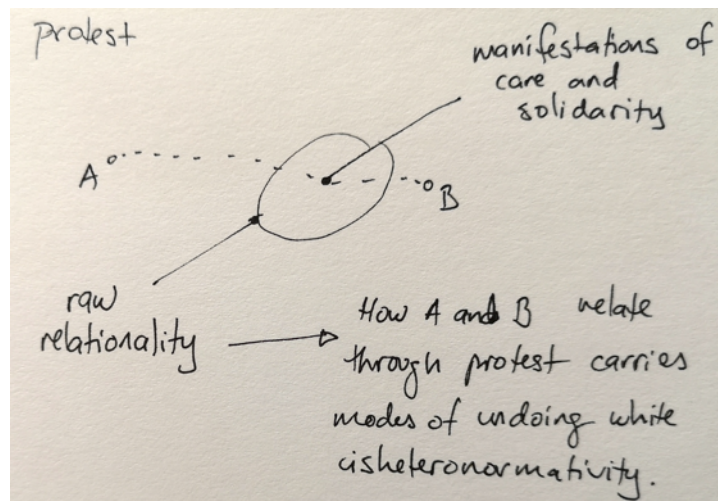 protest
manifestations of
care and
solidarity
A
B
raw
relationality
How A and B relate
through protest carries
modes of undoing white
cisheteronormativity.